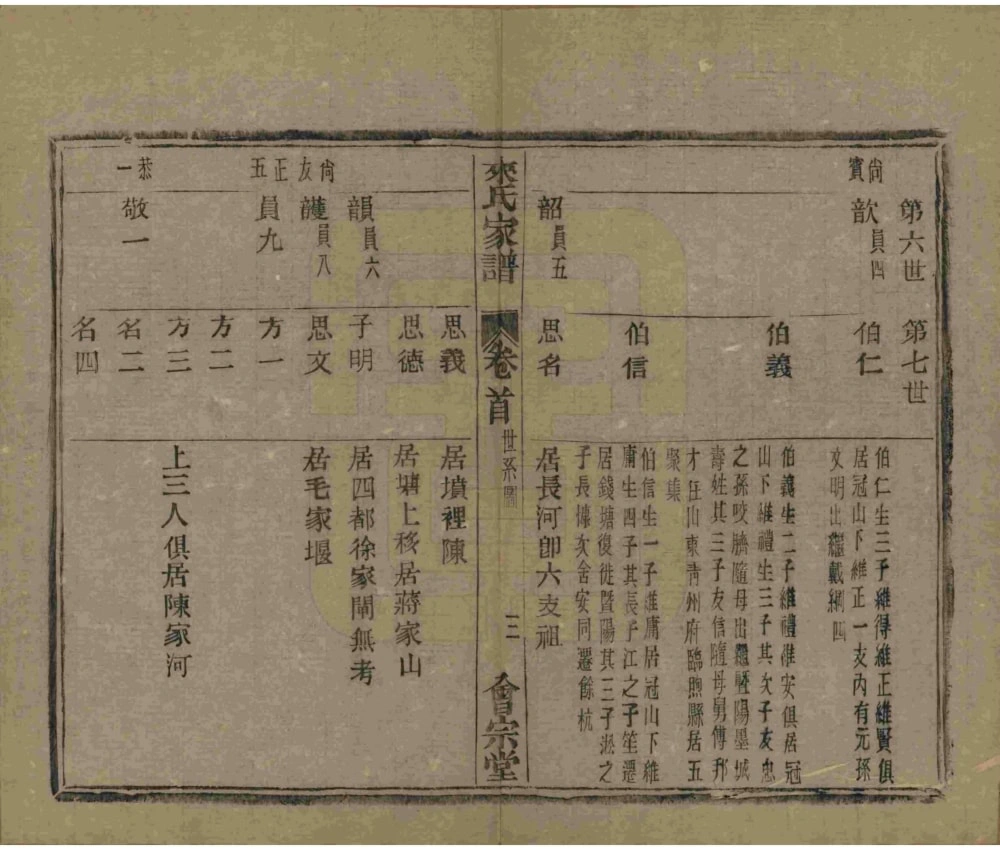 第六世
第七世
尙賓
歆員四
伯仁
伯仁生三子維得維正維賢俱
居冠山下維正一支內有元孫
文明出繼載綱四
伯義
伯義生二子維禮維安俱居冠
山下維禮生三子其次子友忠
之孫咬臍隨母出繼暨陽墨城
壽姓其三子友信隨母舅傅邦
才在山東靑州府臨朐縣居五
聚集
伯信
伯信生一子維庸居冠山下維
庸生四子其長子江之子笙遷
居錢塘復徙暨陽其三子淞之
子長㯋次舍安同遷餘杭
韶員五
思名
居長河卽六支祖
來氏家譜
卷首
世系圖
三
會宗堂
思義
居墳裡陳
思德
居塘上移居蔣家山
尙友
韻員六
子明
居四都徐家閘無考
員八
思文
居毛家堰
正五
員九
方一
方二
方三
上三人俱居陳家河
恭一
敬一
名二
名四